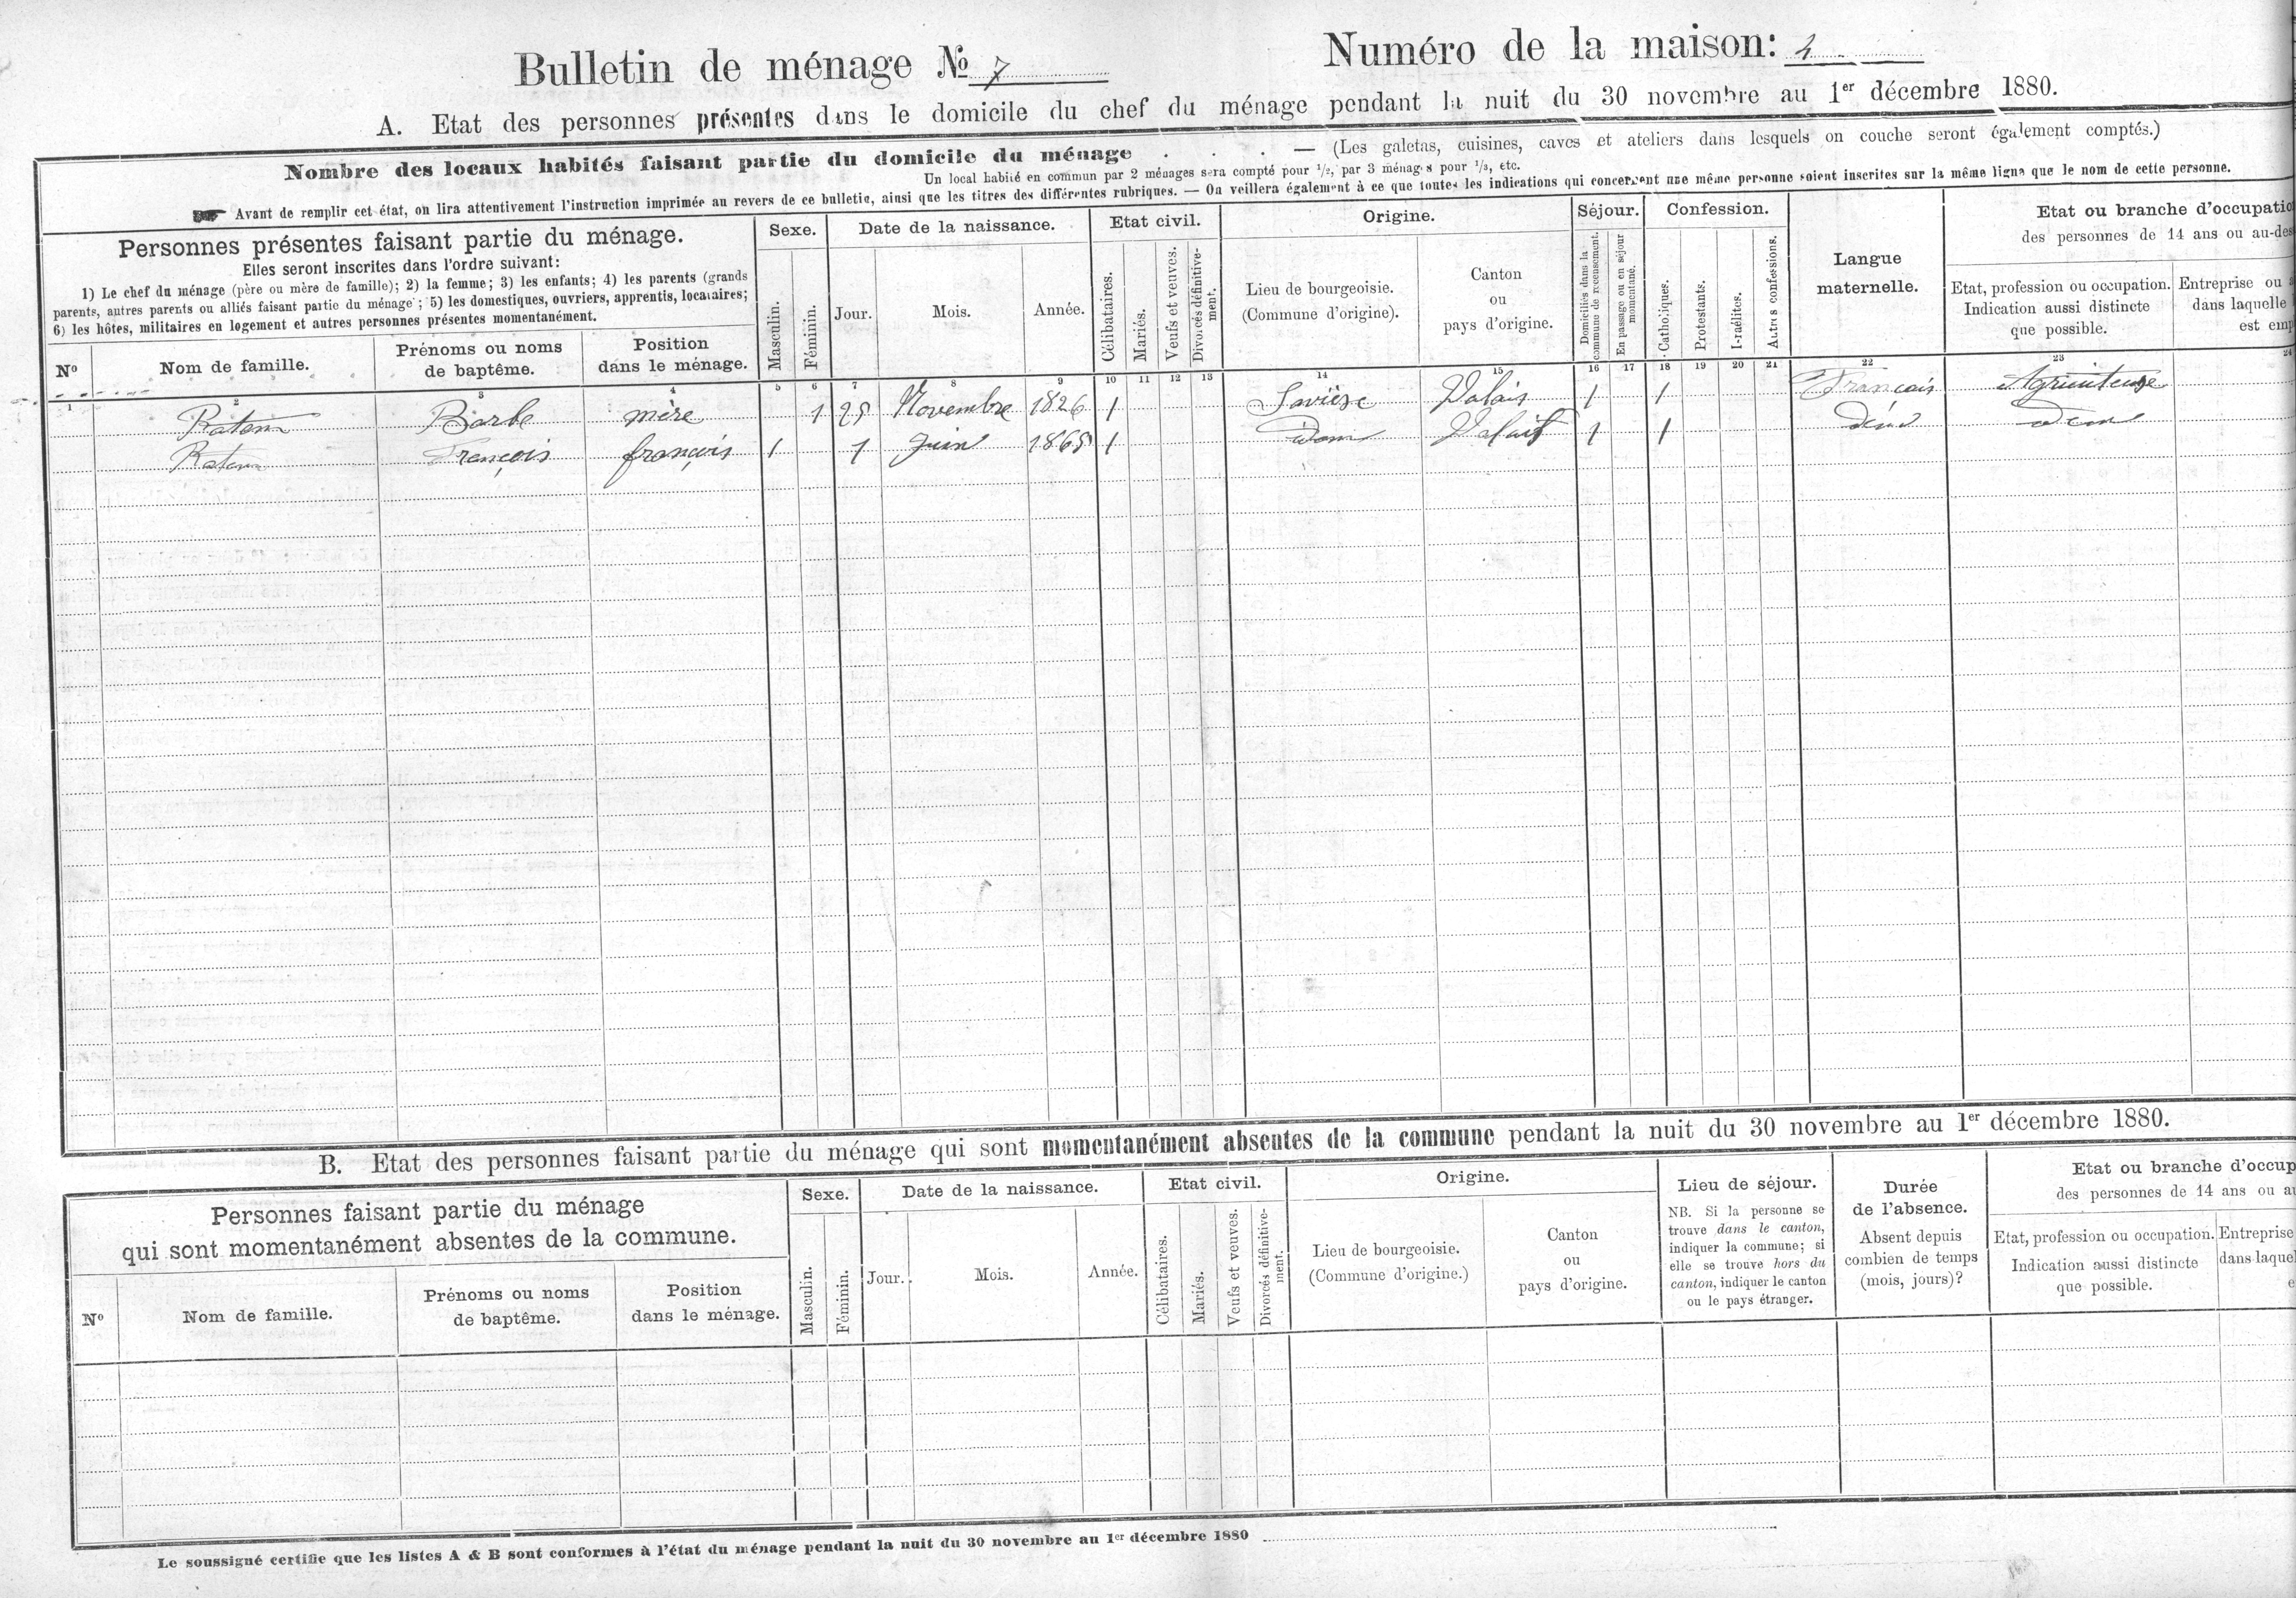 Bulletin de ménage № 7 Numéro de la maison: 4
A. Etat des personnes présentes dans le domicile du chef du ménage pendant la nuit du 30 novembre au 1er décembre 1880.
Nombre des locaux habités faisant partie du domicile du ménage . . . — (Les galetas, cuisines, caves et ateliers dans lesquels on couche seront également comptés.)
Un local habité en commun par 2 ménages sera compté pour 1/2, par 3 ménages pour 1/3, etc.
☞ Avant de remplir cet état, on lira attentivement l'instruction imprimée au revers de ce bulletin, ainsi que les titres des différentes rubriques. — On veillera également à ce que toutes les indications qui concernent une même personne soient inscrites sur la même ligne que le nom de cette personne.
Personnes présentes faisant partie du ménage.
Elles seront inscrites dans l'ordre suivant:
1) Le chef du ménage (père ou mère de famille); 2) la femme; 3) les enfants; 4) les parents (grands
parents, autres parents ou alliés faisant partie du ménage; 5) les domestiques, ouvriers, apprentis, locataires;
6) les hôtes, militaires en logement et autres personnes présentes momentanément.
Nº
Nom de famille.
Prénoms ou noms
de baptême.
Position
dans le ménage.
Sexe.
Masculin.
Féminin.
Date de la naissance.
Jour.
Mois.
Année.
Etat civil.
Célibataires.
Mariés.
Veufs et veuves.
Divorcés définitive-
ment.
Origine.
Lieu de bourgeoisie.
(Commune d'origine).
Canton
ou
pays d'origine.
Séjour.
Domiciliés dans la
commune de recensement.
En passage ou en séjour
momentané.
Confession.
Catholiques.
Protestants.
Israélites.
Autres confessions.
Langue
maternelle.
Etat ou branche d'occupatio
des personnes de 14 ans ou au-des
Etat, profession ou occupation.
Indication aussi distincte
que possible.
Entreprise ou
dans laquelle
est emp
1 2 3 4 5 6 7 8 9 10 11 12 13 14 15 16 17 18 19 20 21 22 23 24
Barbe mère 1 25 Novembre 1826 1 Savièse Valais 1 1 Francais
François françois 1 1 Juin 1865 1 Valais 1 1
B. Etat des personnes faisant partie du ménage qui sont momentanément absentes de la commune pendant la nuit du 30 novembre au 1er décembre 1880.
Personnes faisant partie du ménage
qui sont momentanément absentes de la commune.
Nº
Nom de famille.
Prénoms ou noms
de baptême.
Position
dans le ménage.
Sexe.
Masculin.
Féminin.
Date de la naissance.
Jour.
Mois.
Année.
Etat civil.
Célibataires.
Mariés.
Veufs et veuves.
Divorcés définitive-
ment.
Origine.
Lieu de bourgeoisie.
(Commune d'origine.)
Canton
ou
pays d'origine.
Lieu de séjour.
NB. Si la personne se
trouve dans le canton,
indiquer la commune; si
elle se trouve hors du
canton, indiquer le canton
ou le pays étranger.
Durée
de l'absence.
Absent depuis
combien de temps
(mois, jours)?
Etat ou branche d'occup
des personnes de 14 ans ou au
Etat, profession ou occupation.
Indication aussi distincte
que possible.
Entreprise
dans laquel
e
Le soussigné certifie que les listes A & B sont conformes à l'état du ménage pendant la nuit du 30 novembre au 1er décembre 1880